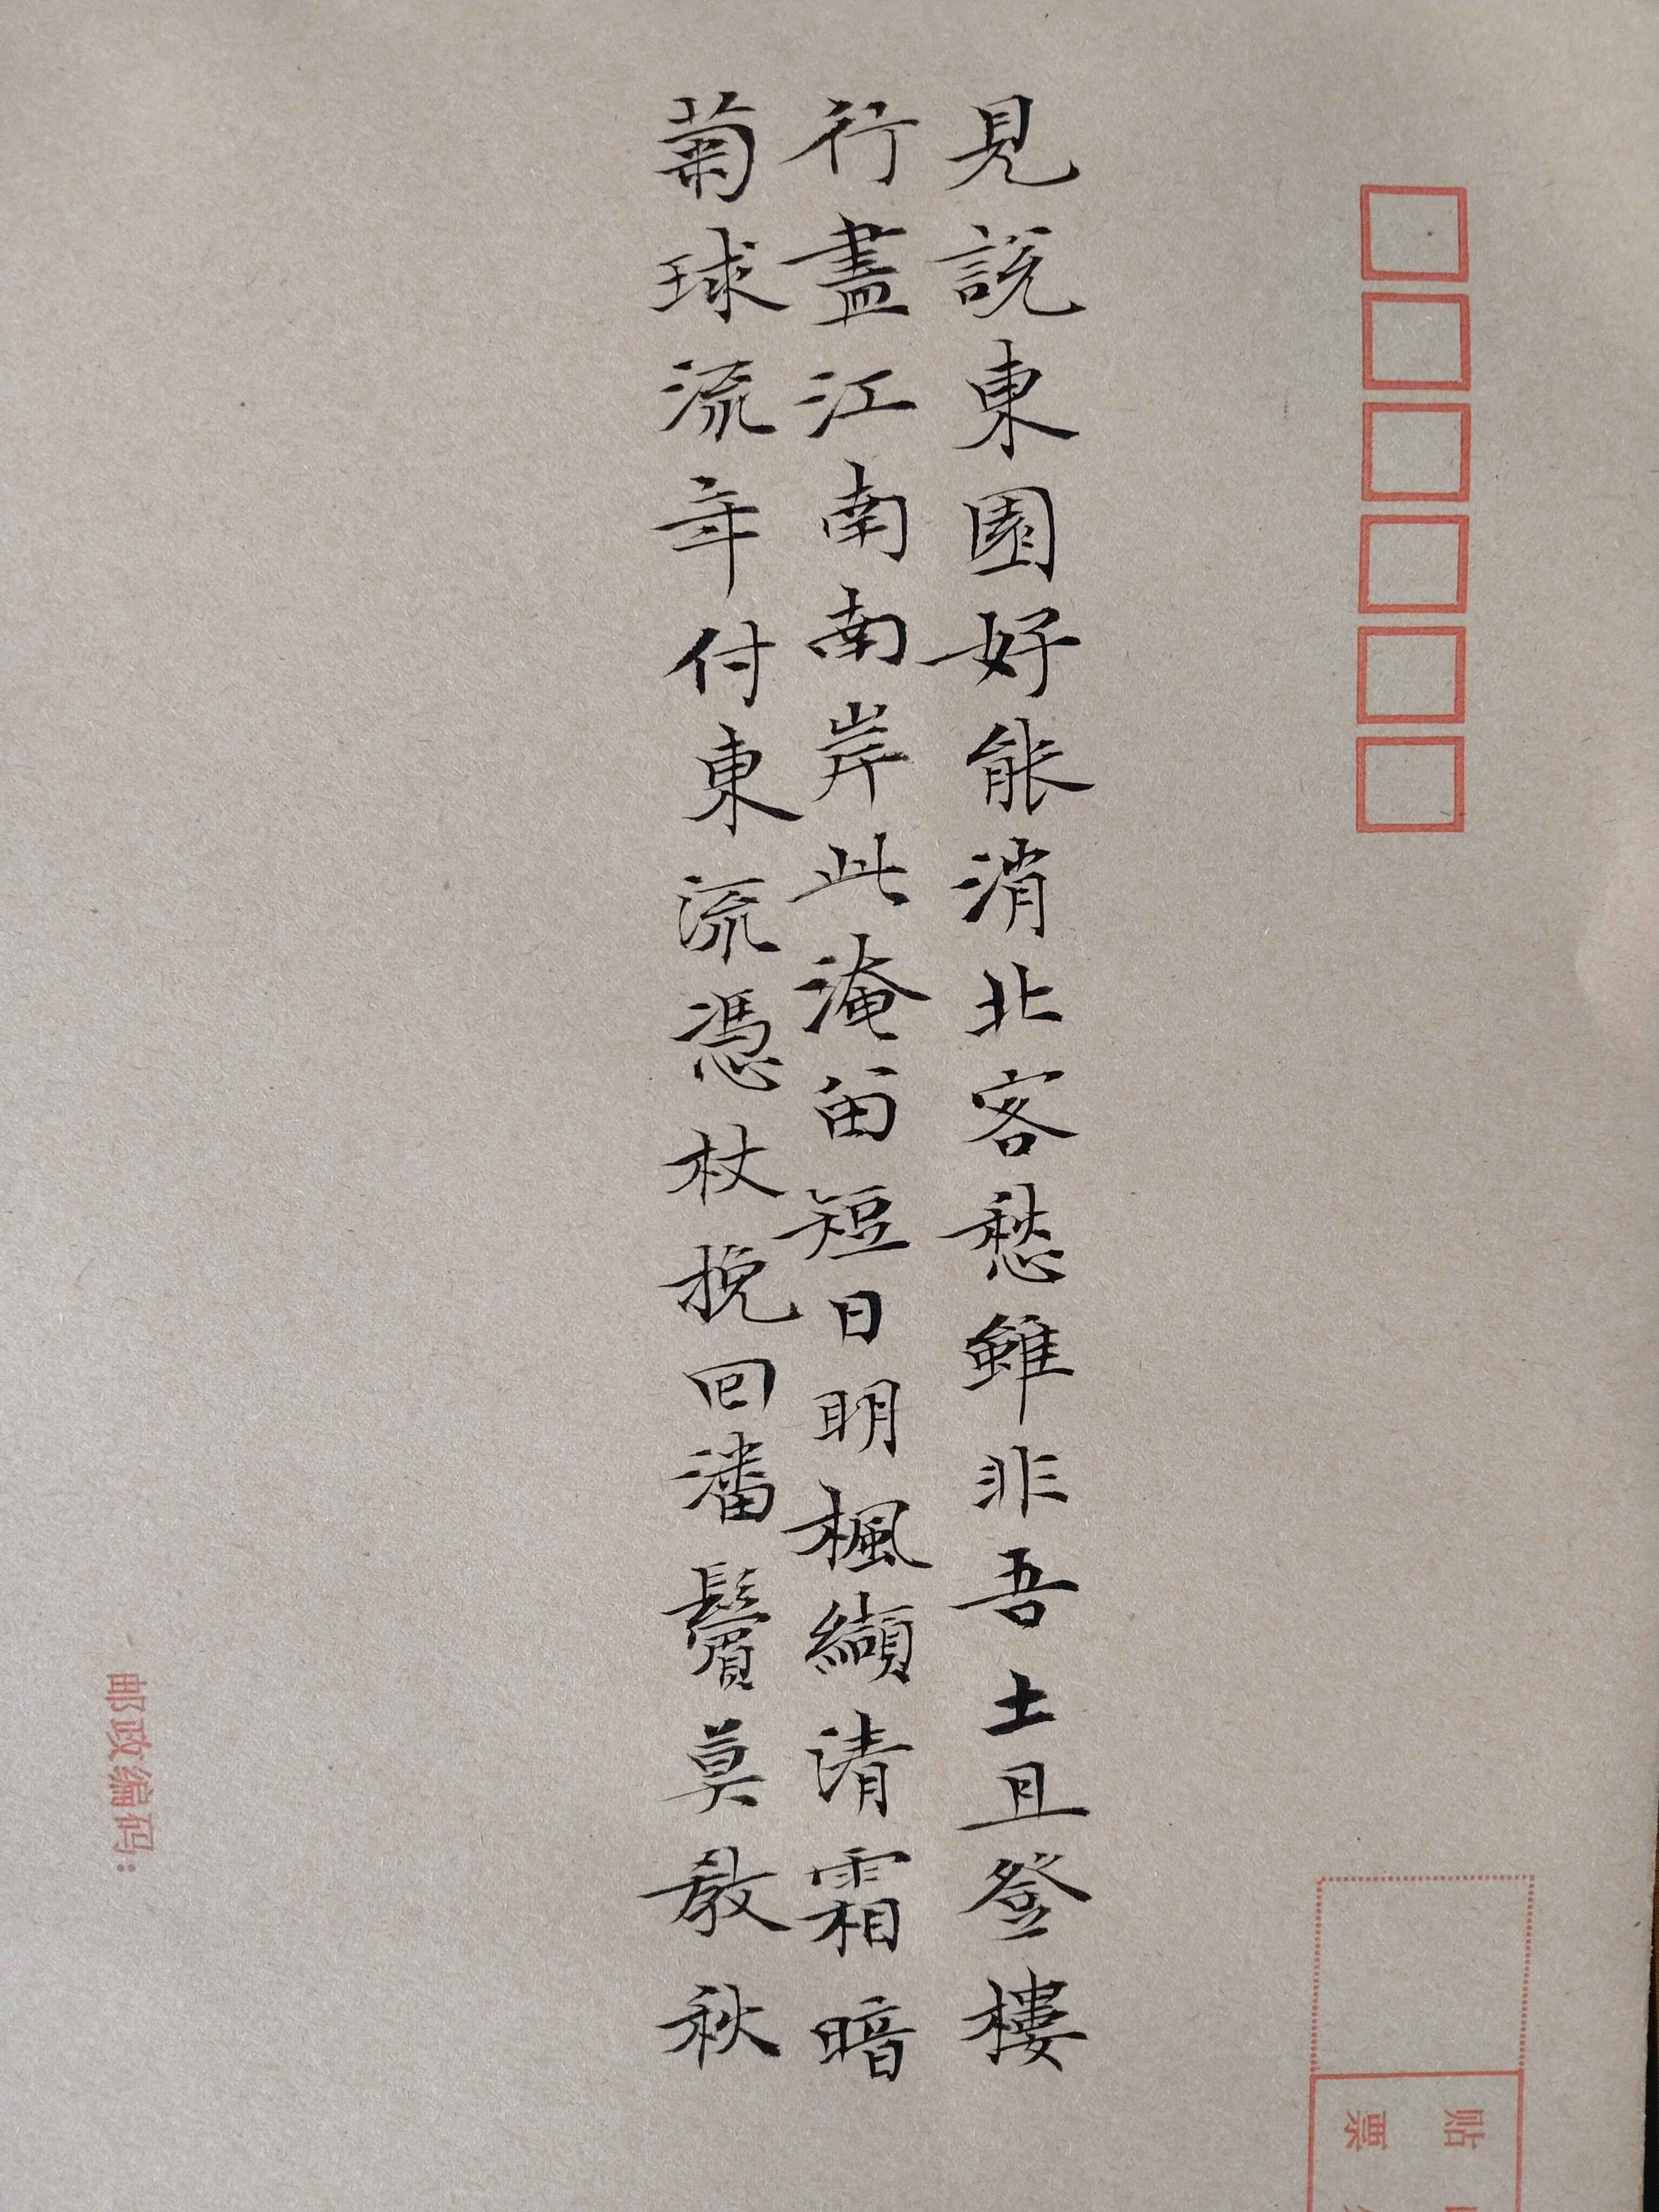 見說東園好能消北客愁雖非吾土且登樓
行盡江南南岸此淹留短日明楓纈清霜暗
菊球流年付東流憑杖挽回潘鬢莫教秋
邮政编码：
贴
票